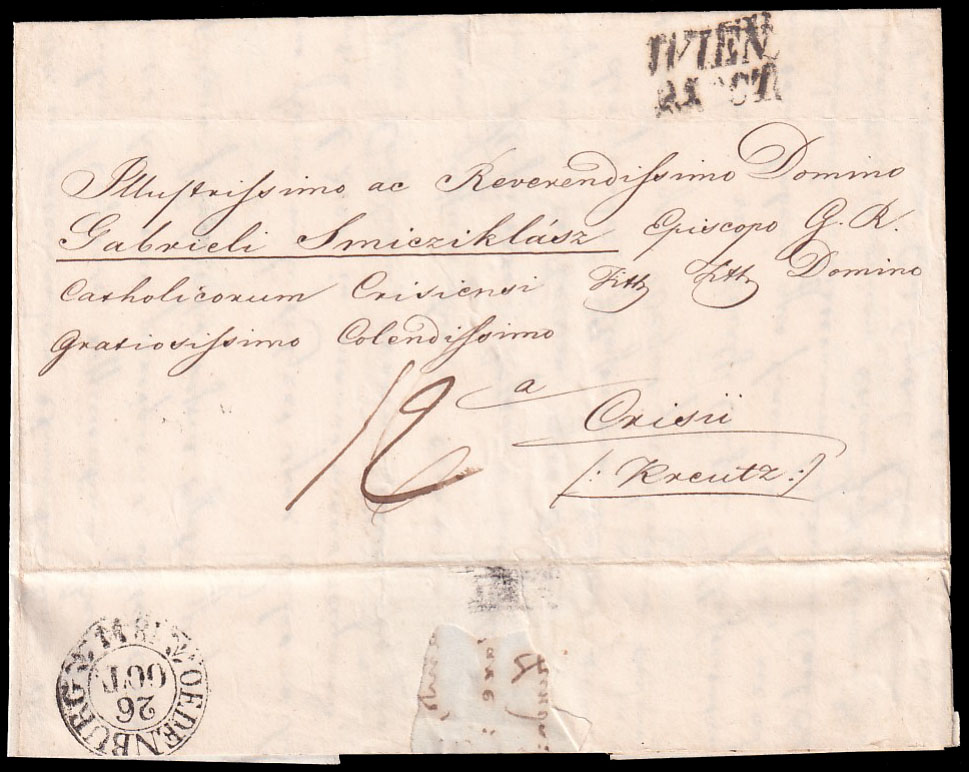 WIEN
Illustrissimo ac Reverendissimo Domino
Gabrieli Smicziklász Episcopo G. R.
Catholicorum Crisiensi Titt Titt Domino
Gratiosissimo Colendissimo
12
a
Crisii
(: Kreutz :)
OEDENBURG
26
OCT